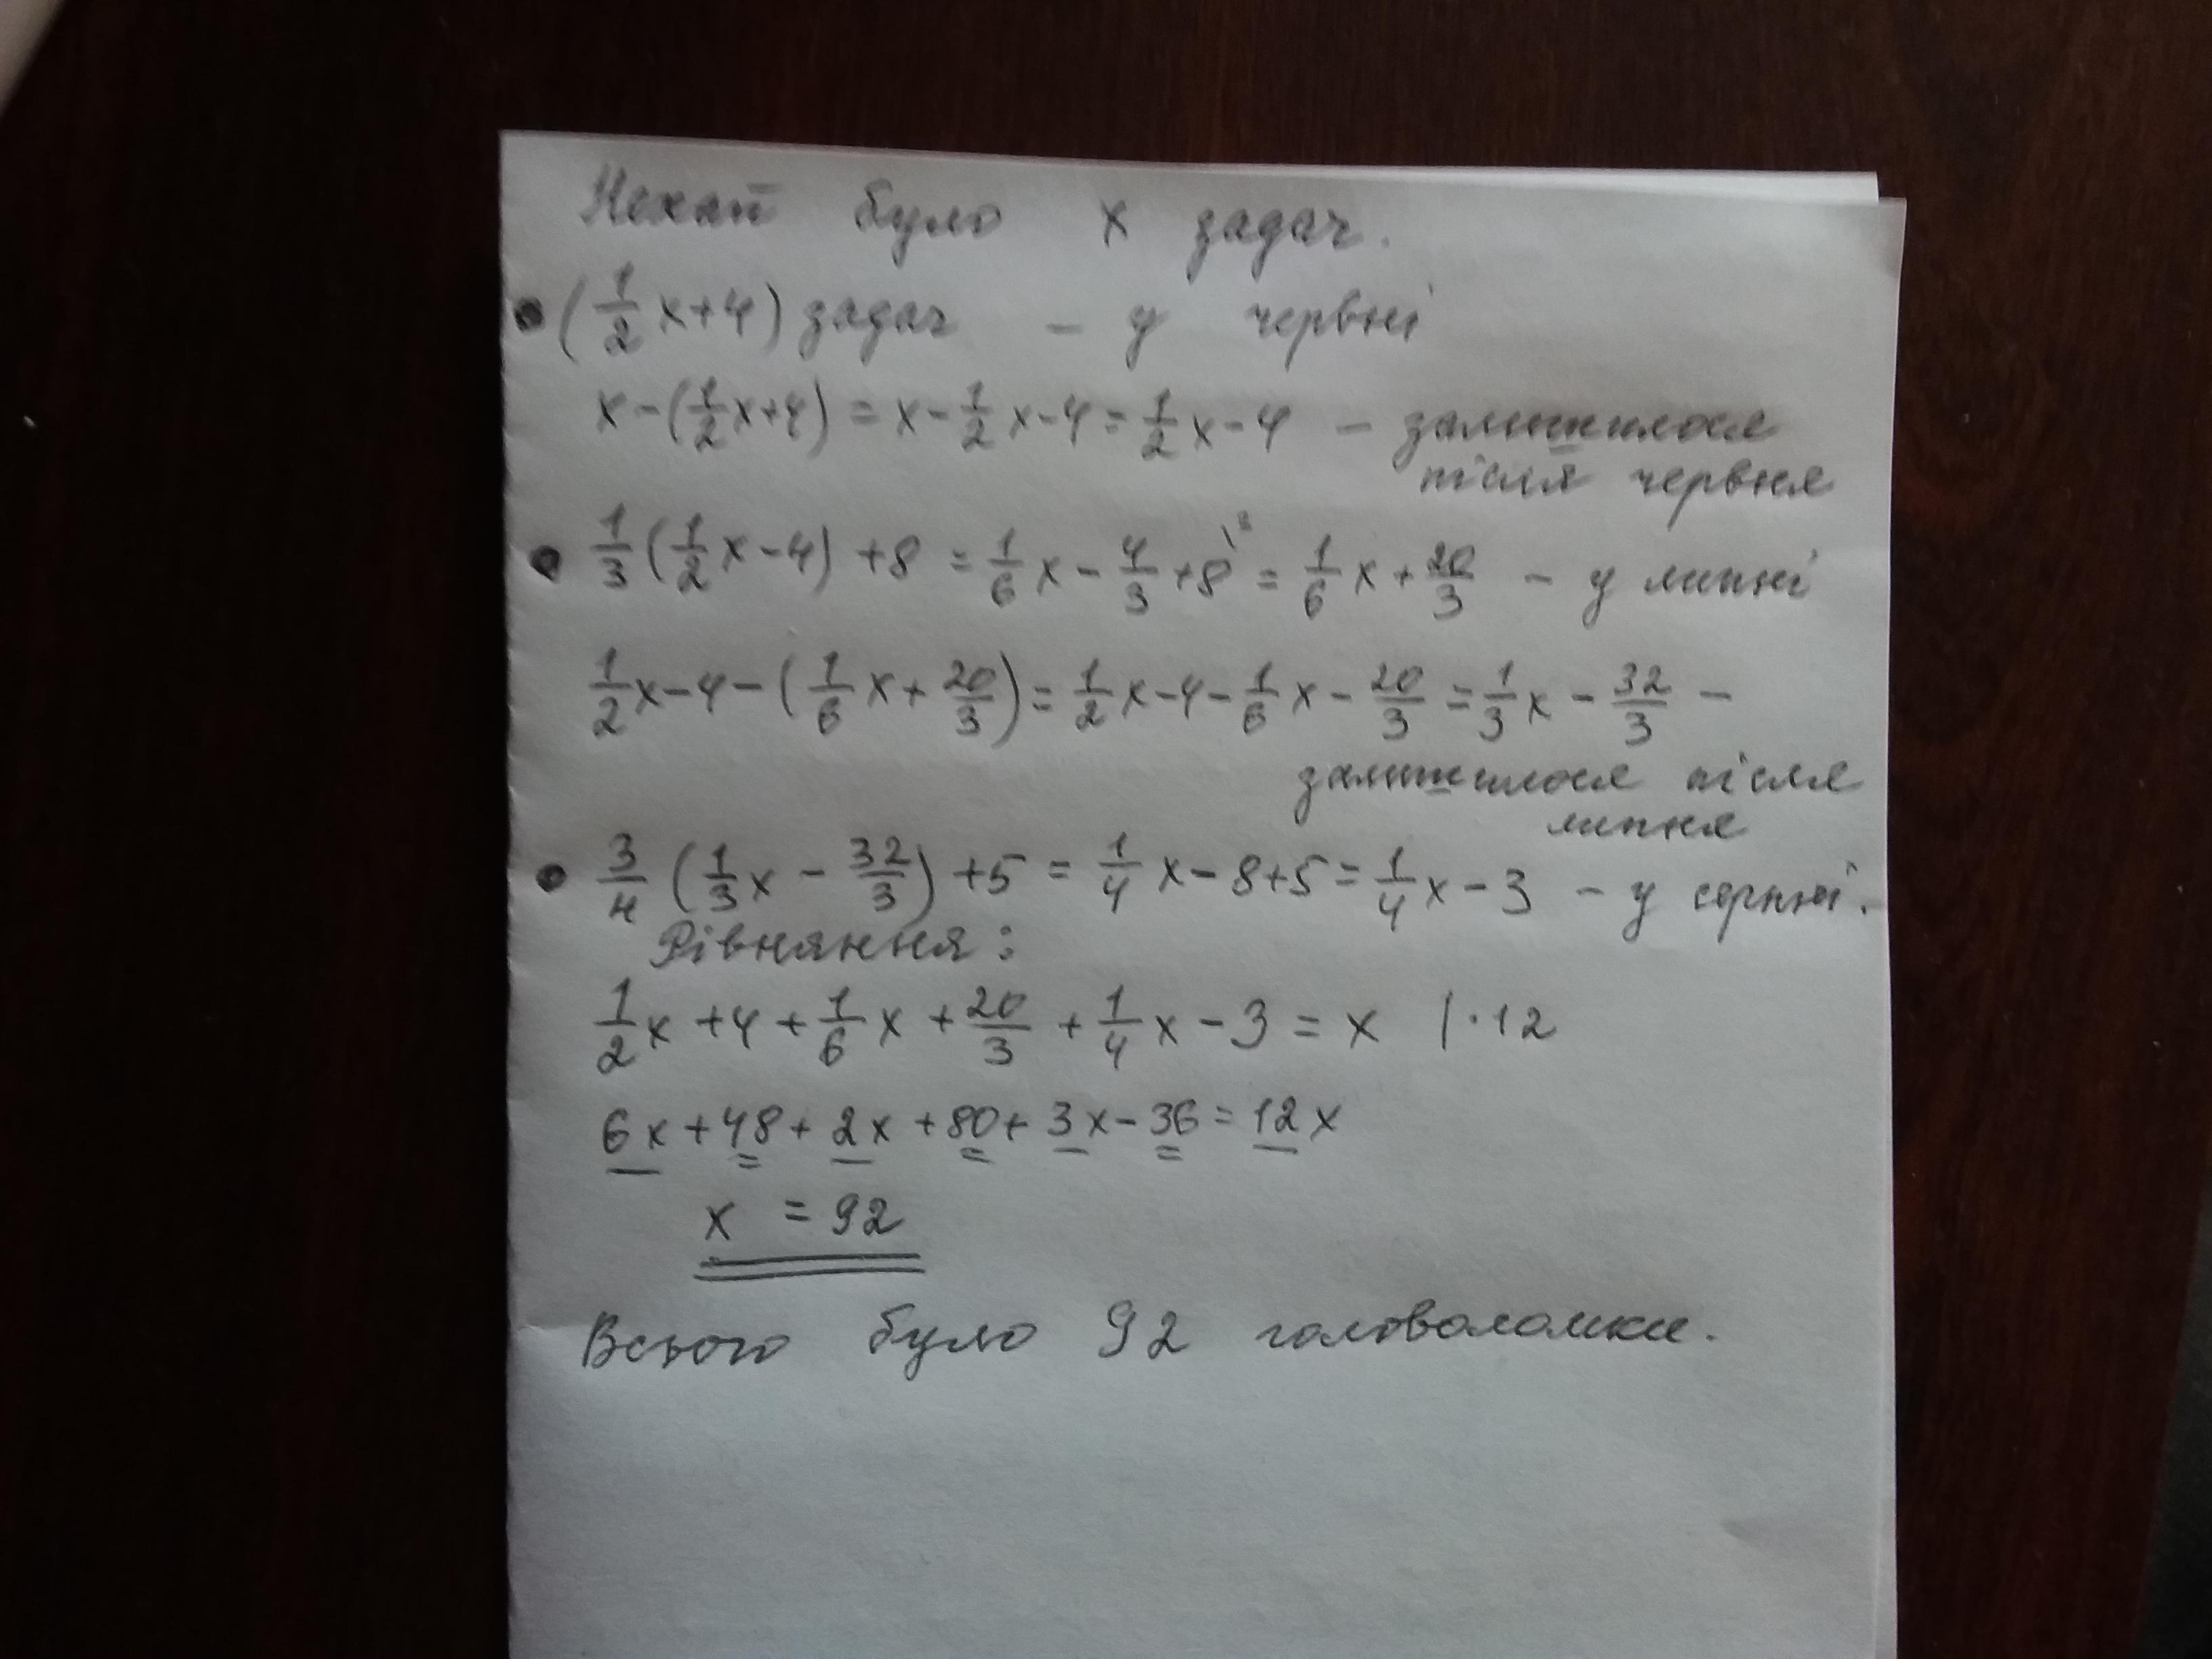 Нехай було x задач.
• (1/2 x+4) задач – у червні
x-(1/2 x+4) = x-1/2 x-4 = 1/2 x-4 – залишилося
після червня
• 1/3 (1/2 x-4) +8 = 1/6 x - 4/3 +8 \³ = 1/6 x + 20/3 – у липні
1/2 x-4-(1/6 x+ 20/3) = 1/2 x-4-1/6 x - 20/3 = 1/3 x - 32/3 –
залишилося після
липня
• 3/4 (1/3 x - 32/3) +5 = 1/4 x - 8+5 = 1/4 x - 3 – у серпні.
Рівняння:
1/2 x +4 + 1/6 x + 20/3 + 1/4 x - 3 = x |·12
6x+48+2x+80+3x-36=12x
x = 92
Всього було 92 головоломки.